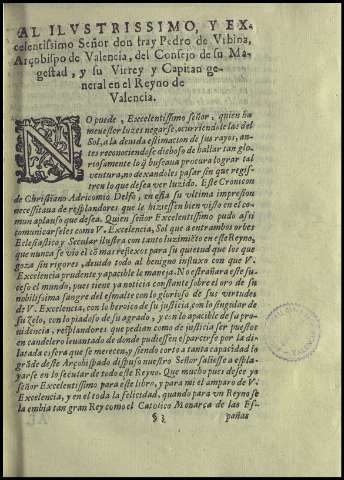 AL ILVSTRISSIMO, Y EX-
celentissimo Señor don fray Pedro de Vrbina,
Arçobispo de Valencia, del Consejo de su Ma-
gestad, y su Virrey y Capitan ge-
neral en el Reyno de
Valencia.
NO puede, Excelentissimo señor, quien ha
menester luzes negarse, ocurriendole las del
Sol, a la deuida estimacion de sus rayos, an-
tes reconociendose dichoso de hallar tan glo-
riosamente lo q̃ buscaua procura lograr tal
ventura, no dexandoles passar sin que regis-
tren lo que desea ver luzido. Este Cronicon
de Christiano Adricomio Delfo, en esta su vltima impression
necessitaua de resplandores que le hiziessen bien visto en el co-
mun aplauso que desea. Quien señor Excelentissimo pudo assi
comunicarseles como V. Excelencia, Sol que a entrambos orbes
Eclesiastico y Secular ilustra con tanto luzimiẽto en este Reyno,
que nunca se vio el cõ mas reflexos para su quietud que los que
goza sin rigores, deuido todo al benigno influxo con que V.
Excelencia prudente y apacible le maneja. No estrañara este su-
cesso el mundo, pues tiene ya noticia constante sobre el oro de su
nobilissima sangre del esmalte con lo glorioso de sus virtudes
de V. Excelencia, con lo heroico de su justicia, con lo singular de
su zelo, con lo piadoso de su agrado, y con lo apacible de su pro-
uidencia, resplandores que pedian como de justicia ser puestos
en candelero leuantado de donde pudiessen esparcirse por la di-
latada esfera que se merecen, y siendo corto a tanta capacidad lo
grãde deste Arçobispado dispuso nuestro Señor saliesse a espla-
yarse en lo secular de todo este Reyno. Que mucho pues desee yo
señor Excelentissimo para este libro, y para mi el amparo de V.
Excelencia, y en el toda la felicidad, quando para vn Reyno se
la embia tan gran Rey como el Catolico Monarca de las Es-
pañas